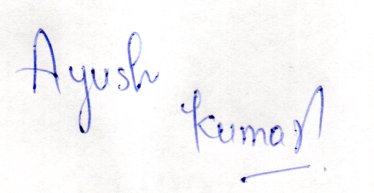 Ayush
Kumar